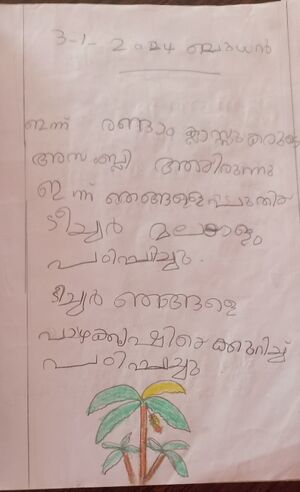 3-1-2024 ബുധൻ
ഇന്ന് രണ്ടാം ക്ലാസ്സുകാരുടെ
അസംബ്ലി ആയിരുന്നു
ഇന്ന് ഞങ്ങളെ
ടീച്ചർ മലയാളം
പഠിപ്പിച്ചു.
ടീച്ചർ ഞങ്ങളെ
വാഴകൃഷിയെക്കുറിച്ച്
പഠിപ്പിച്ചു